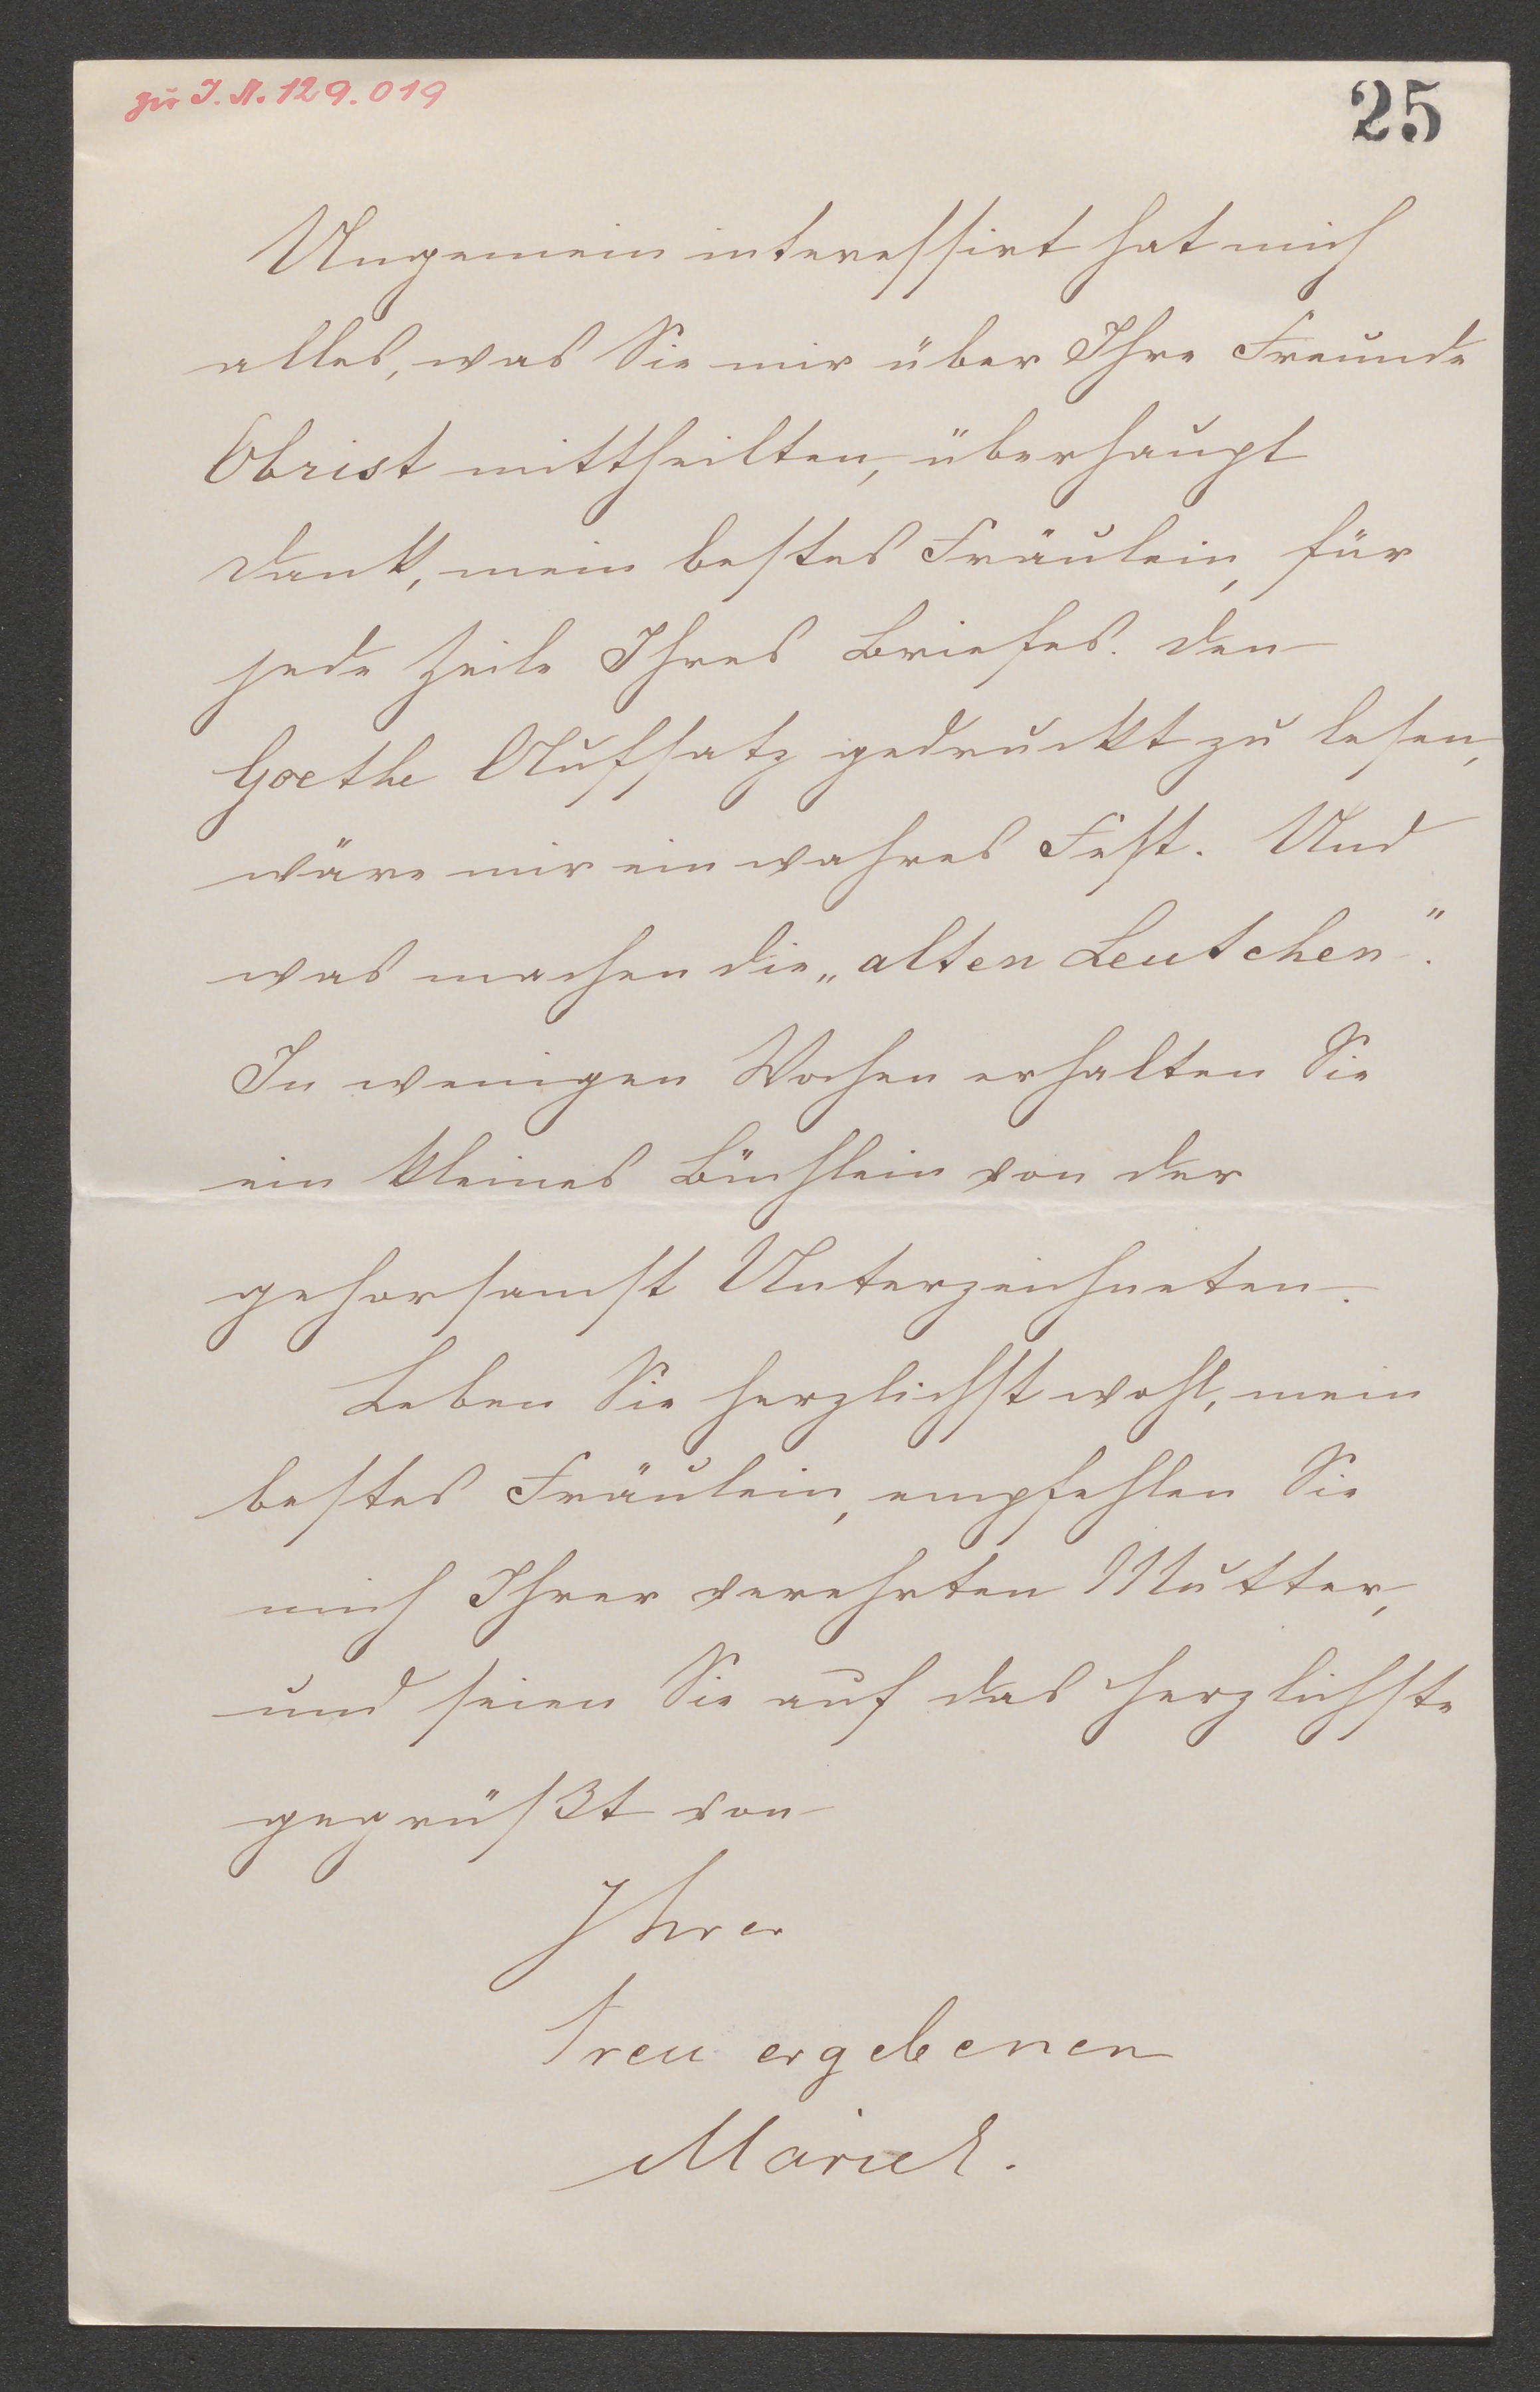 zu I.N. 129.019
25
Ungemein interessirt hat mich
alles, was Sie mir über Ihre Freunde
Obrist mittheilten, überhaupt
Dank, mein bestes Fräulein, für
jede Zeile Ihres Briefes. Den
Goethe Aufsatz gedruckt zu lesen,
wäre mir ein wahres Fest. Und
was machen die „alten Leutchen“.
In wenigen Wochen erhalten Sie
ein kleines Büchlein von der
gehorsamst Unterzeichneten.
Leben Sie herzlichst wohl, mein
bestes Fräulein, empfehlen Sie
mich Ihrer verehrten Mutter,
und seien Sie auf das herzlichste
gegrüßt von
Ihrer
treu ergebenen
MarieE.